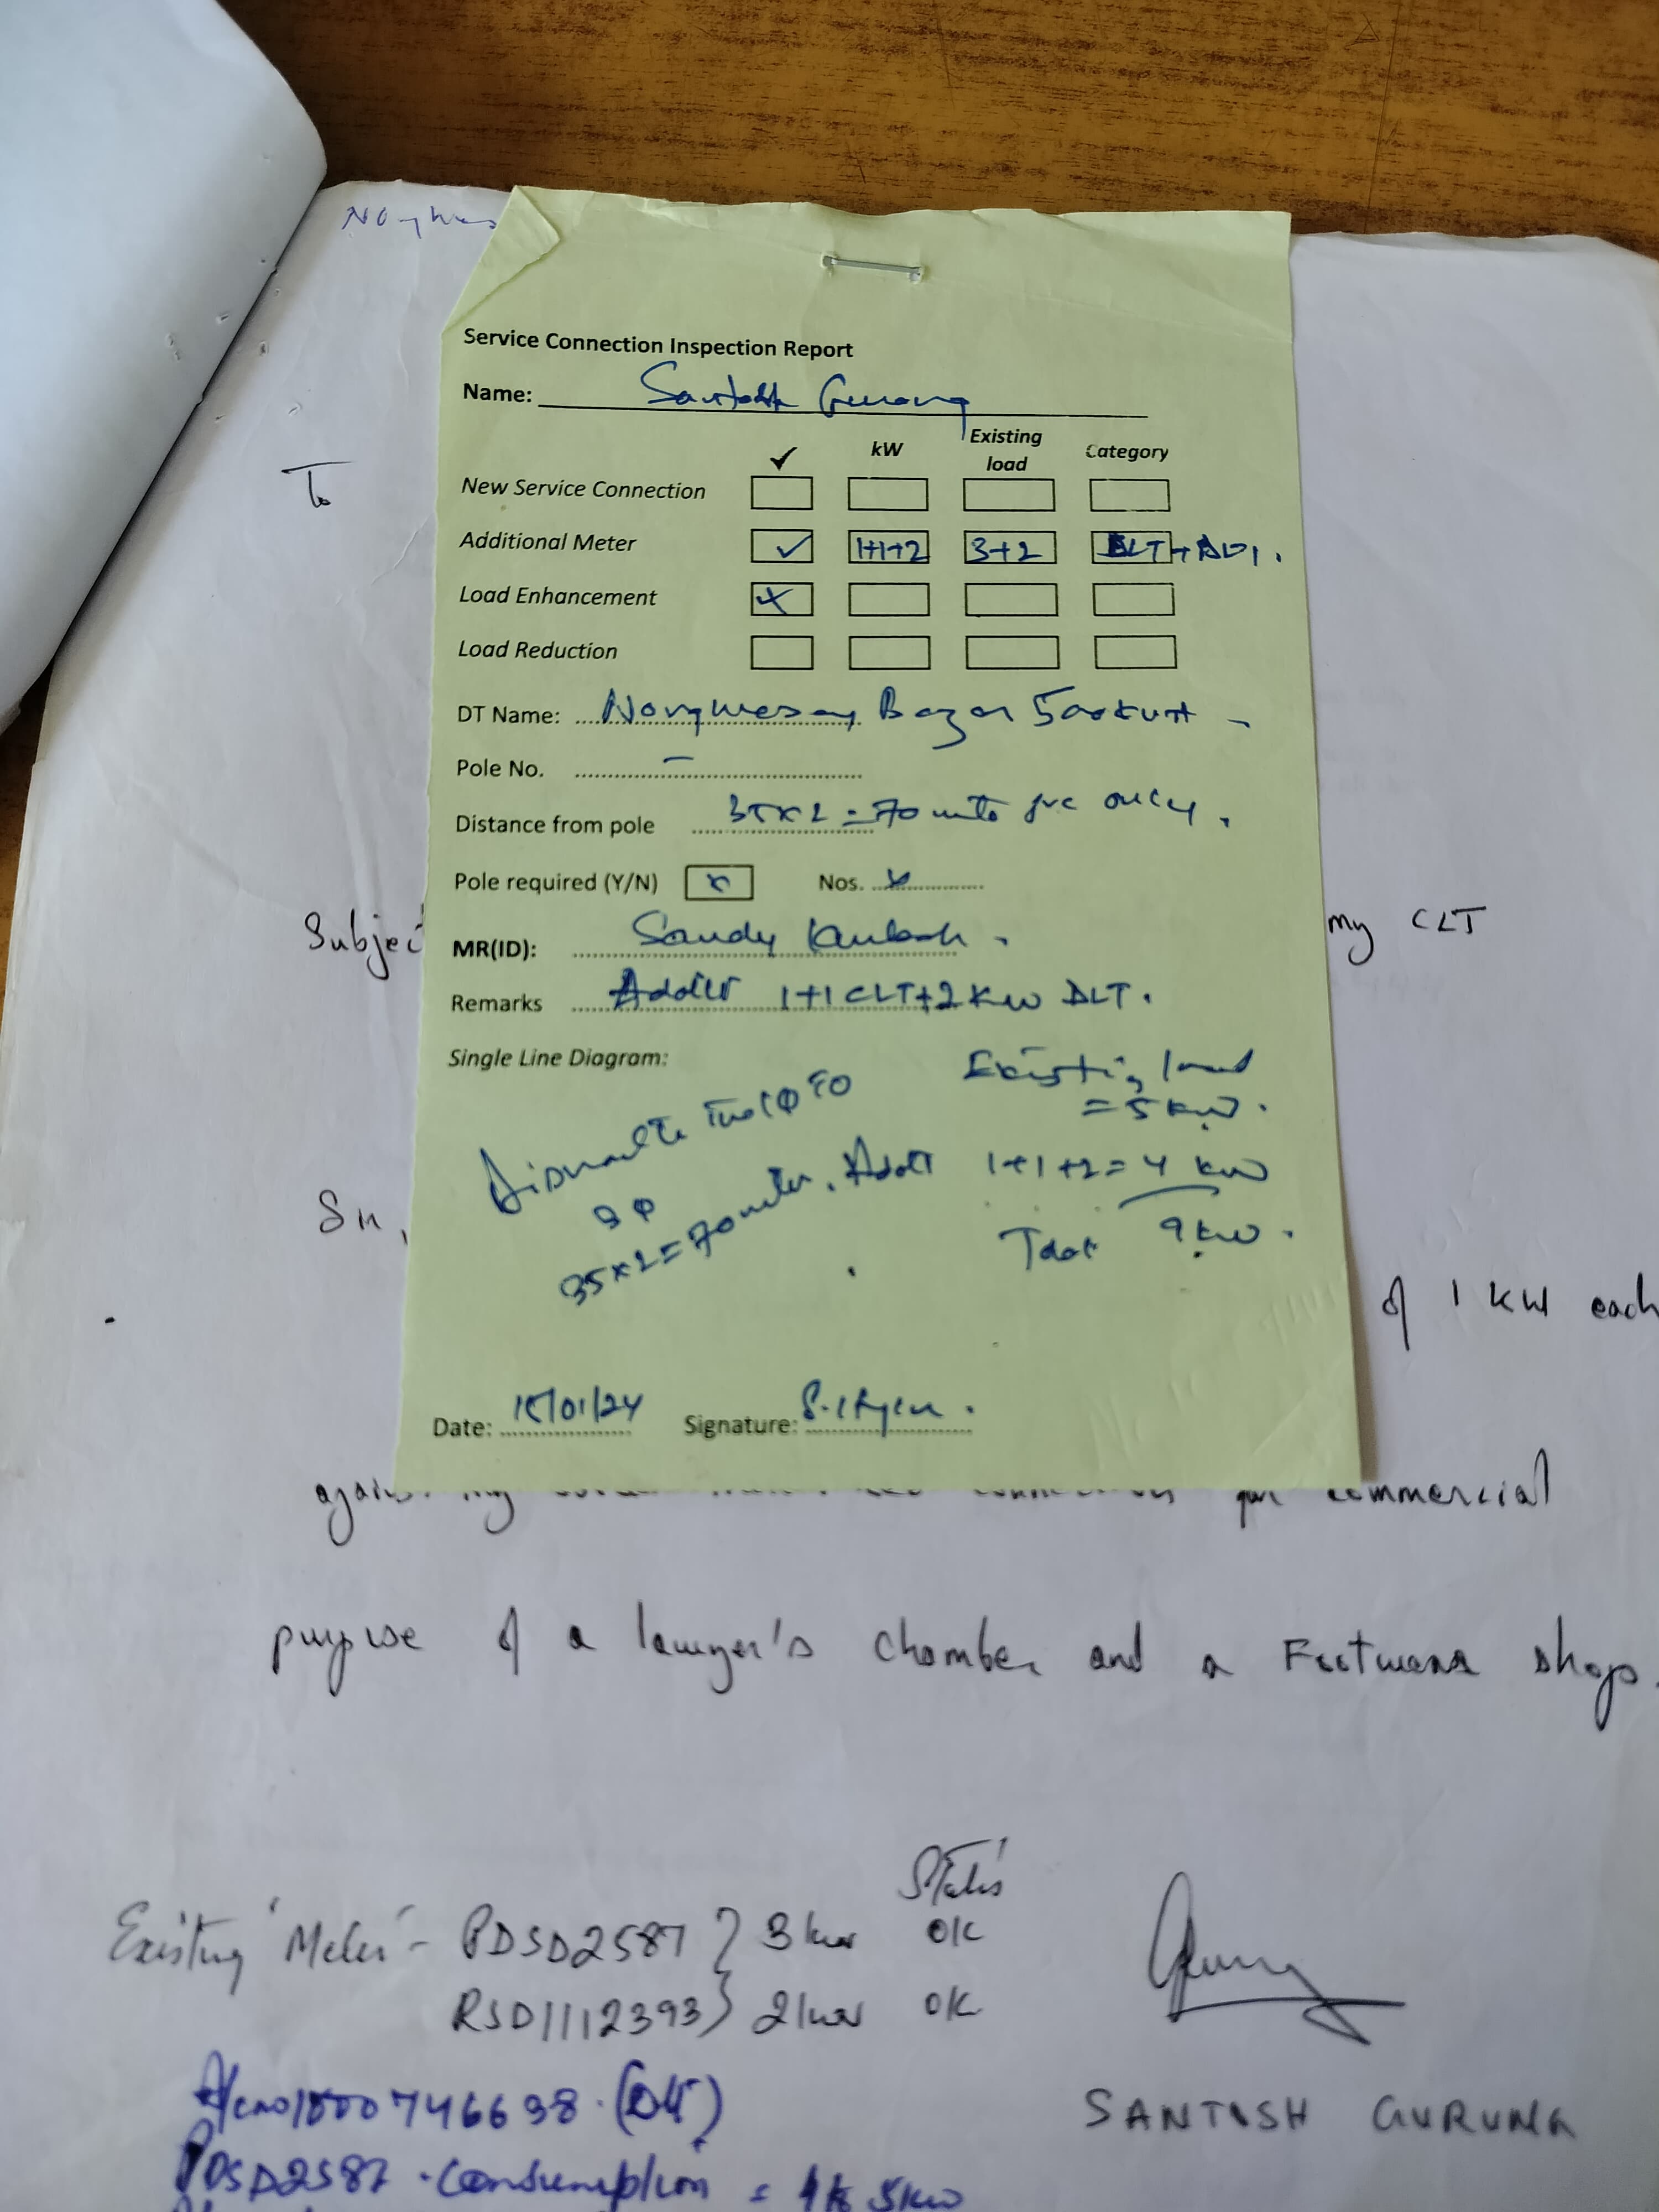 To
Service Connection Inspection Report
Name: Santosh Gurung
✓ kW Existing load Category
New Service Connection
Additional Meter ✓ 1+1+2 3+2
Load Enhancement ×
Load Reduction
DT Name: Bazar 500KVA
Pole No. –
Distance from pole 35×2=70 only.
Pole required (Y/N) × Nos. ×
MR(ID): Sandy
Remarks 1+1 CLT+2 KW DLT.
Single Line Diagram:
Existing load
= 5 kW.
Dismantle 1Φ TO
3Φ
35×2=70 meter.
1+1+2=4 kW
Total 9 kW.
Date: 15/01/24 Signature:
Subject my CLT
Sir,
of 1 KW each
against my for commercial
purpose of a lawyer's chamber and a Footwear shop.
Status
Existing Meter - PDSD2587 } 3 kw OK
RSD1112393 } 2 kw OK
746638. (DLT)
PDSD2587 . Consumption =
SANTOSH GURUNG